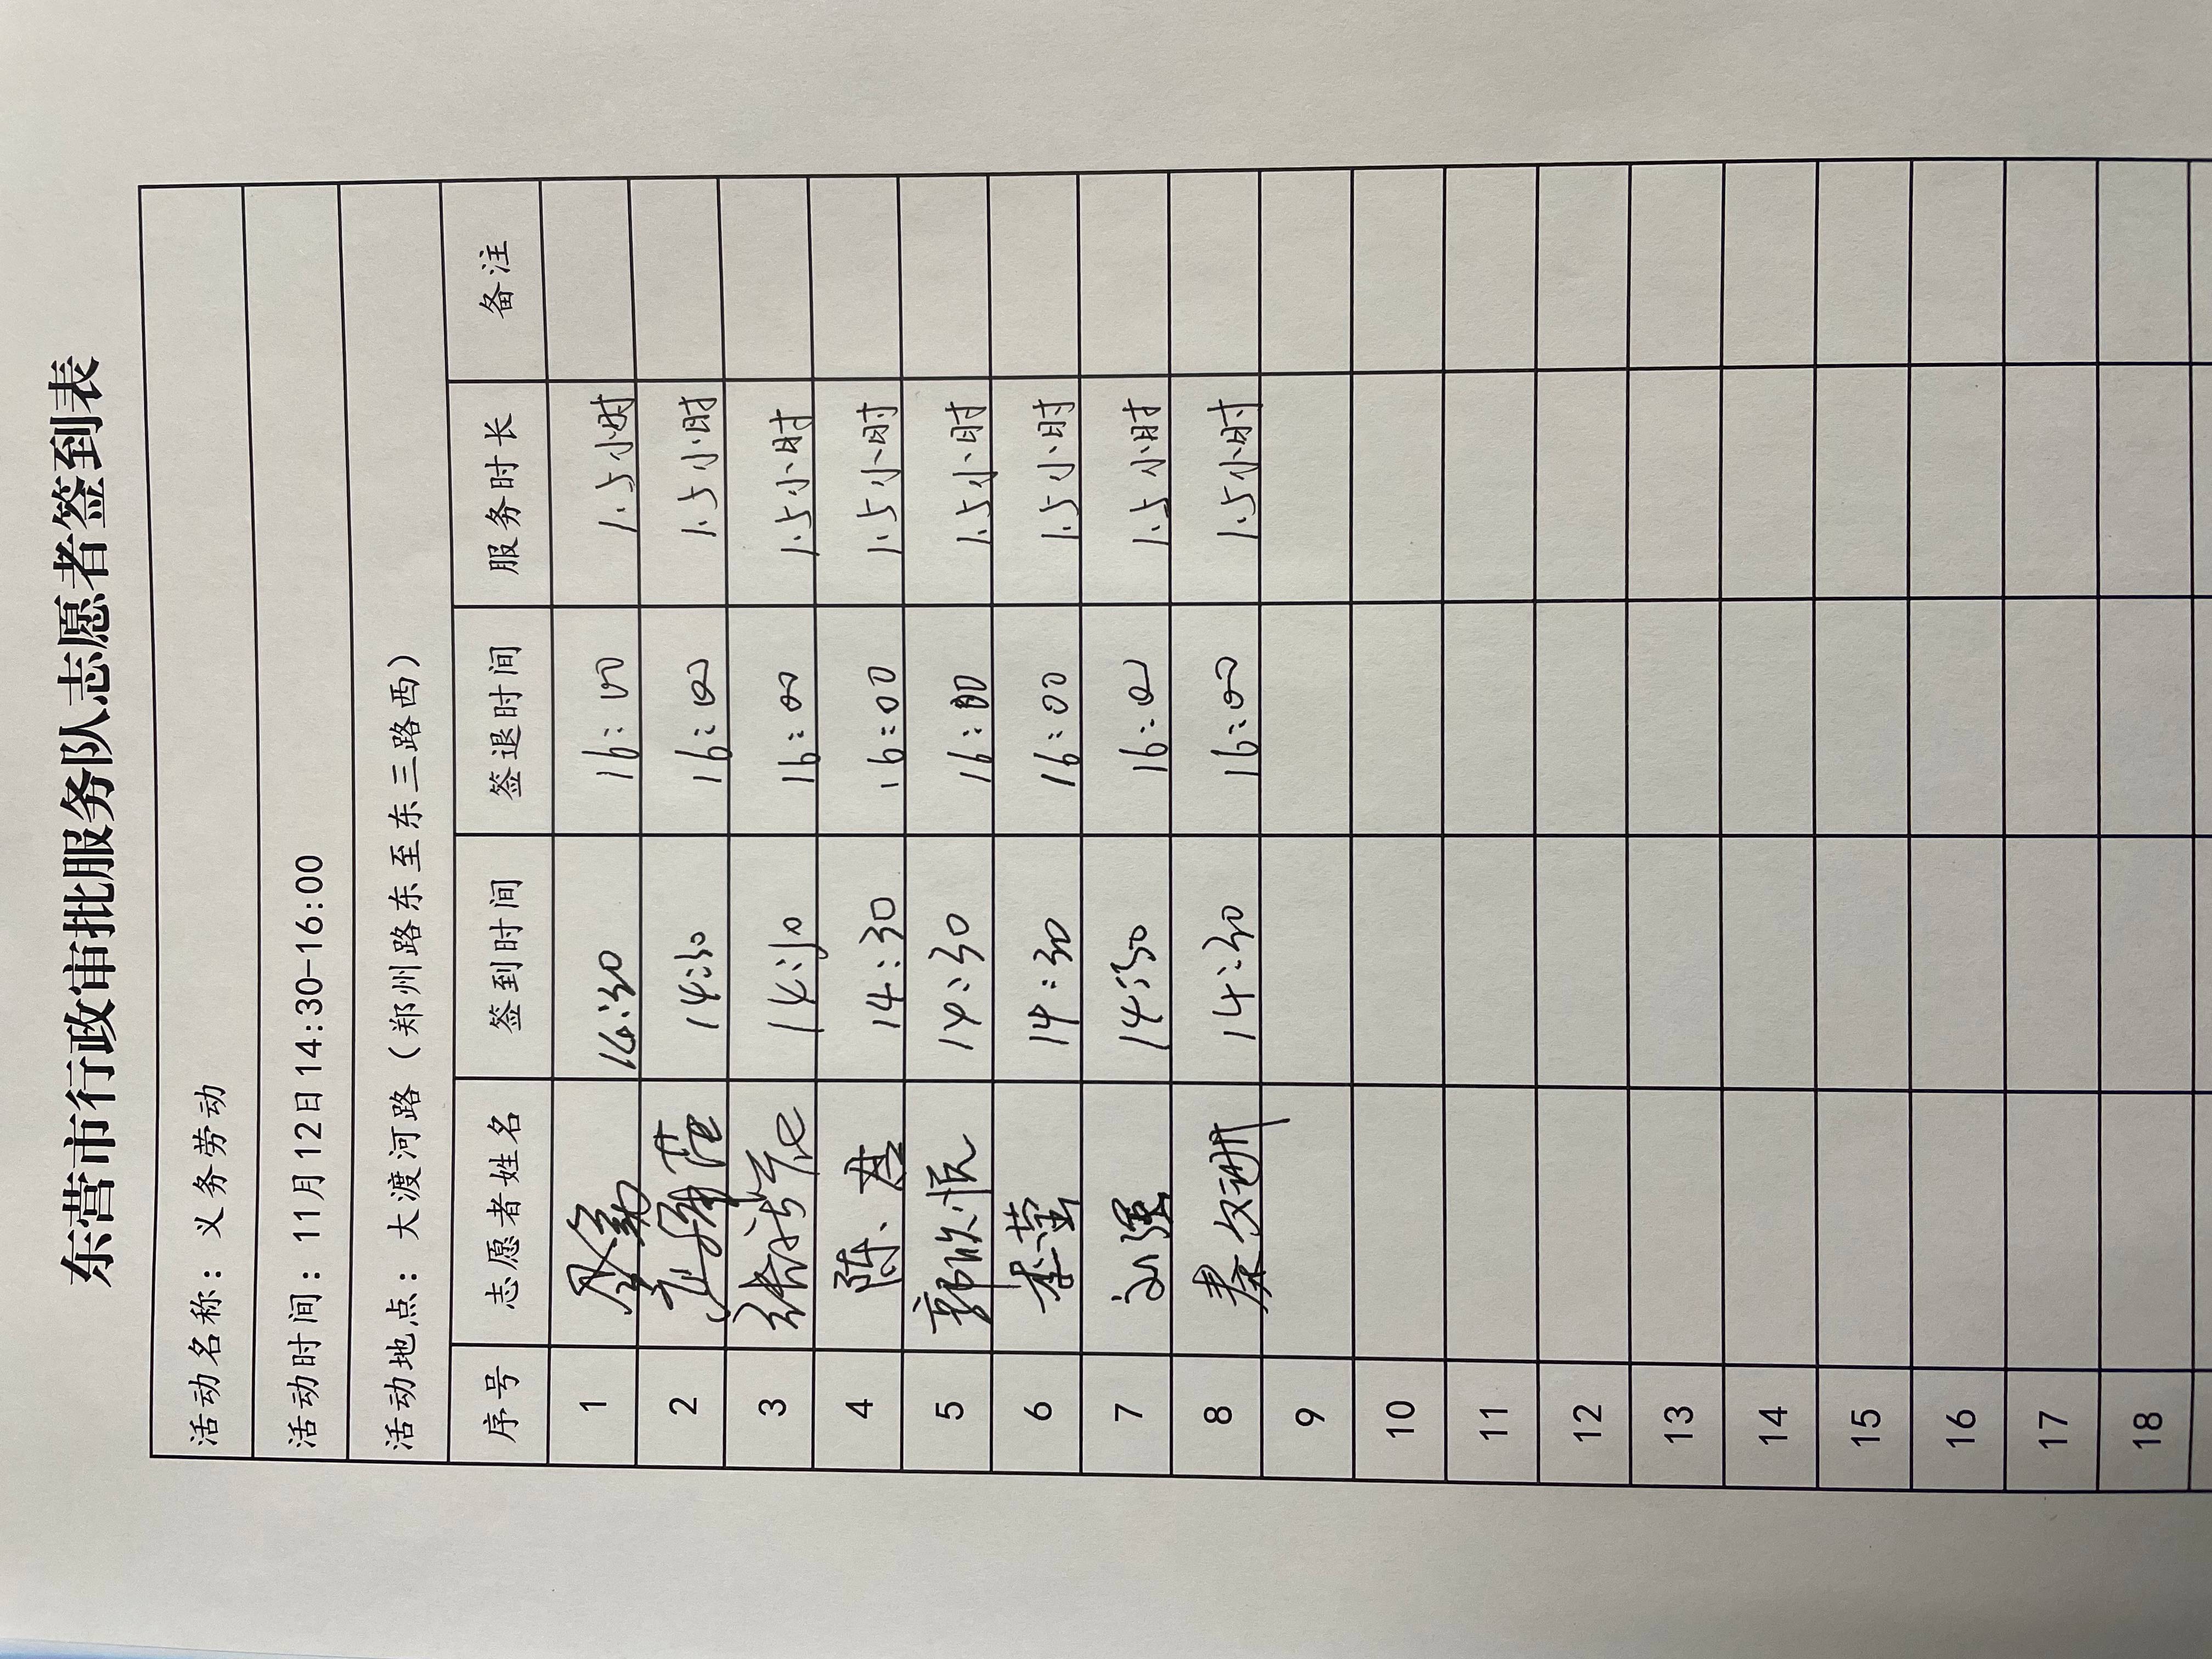 东营市行政审批服务队志愿者签到表
活动名称：义务劳动
活动时间：11月12日14:30-16:00
活动地点：大渡河路（郑州路东至东三路西）
序号 志愿者姓名 签到时间 签退时间 服务时长 备注
1 14:30 16:00 1.5小时
2 14:30 16:00 1.5小时
3 14:30 16:00 1.5小时
4 陈 14:30 16:00 1.5小时
5 郭欣悦 14:30 16:00 1.5小时
6 李莹 14:30 16:00 1.5小时
7 刘强 14:30 16:00 1.5小时
8 秦文珊 14:30 16:00 1.5小时
9
10
11
12
13
14
15
16
17
18